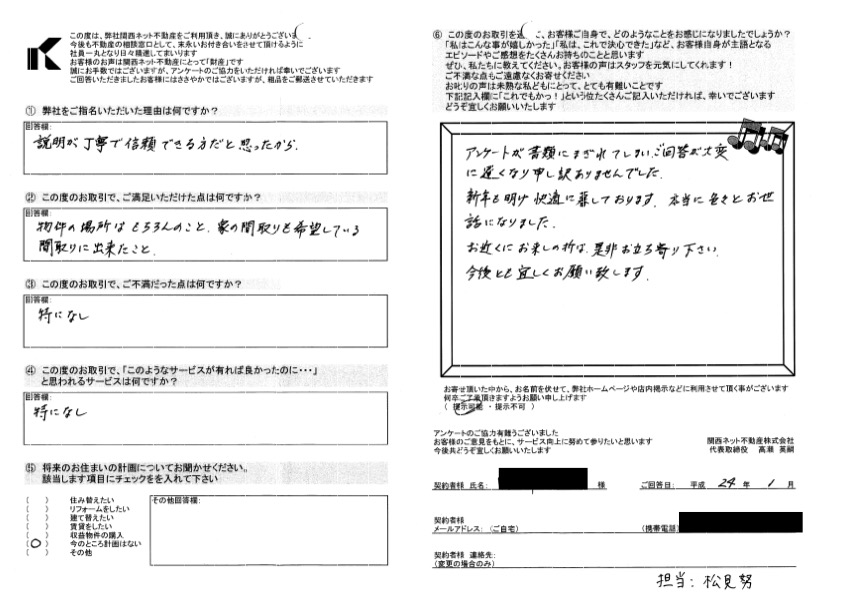 この度は、弊社関西ネット不動産をご利用頂き、誠にありがとうございま
今後も不動産の相談窓口として、末永いお付き合いをさせて頂けるように
社員一丸となり日々精進してまいります
お客様のお声は関西ネット不動産にとって「財産」です
誠にお手数ではございますが、アンケートのご協力をいただければ幸いでございます
ご回答いただきましたお客様にはささやかではございますが、粗品をご郵送させていただきます
① 弊社をご指名いただいた理由は何ですか？
回答欄:
説明が丁寧で信頼できる方だと思ったから.
② この度のお取引で、ご満足いただけた点は何ですか？
回答欄:
物件の場所はもちろんのこと、家の間取りも希望している
間取りに出来たこと.
③ この度のお取引で、ご不満だった点は何ですか？
回答欄:
特になし
④ この度のお取引で、「このようなサービスが有れば良かったのに・・・」
と思われるサービスは何ですか？
回答欄:
特になし
⑤ 将来のお住まいの計画についてお聞かせください。
該当します項目にチェックをを入れて下さい
( ) 住み替えたい
( ) リフォームをしたい
( ) 建て替えたい
( ) 賃貸をしたい
( ) 収益物件の購入
(○) 今のところ計画はない
( ) その他
その他回答欄:
⑥ この度のお取引を ご、お客様ご自身で、どのようなことをお感じになりましたでしょうか？
「私はこんな事が嬉しかった」「私は、これで決心できた」など、お客様自身が主語となる
エピソードやご感想をたくさんお持ちのことと思います
ぜひ、私たちに教えてください。お客様の声はスタッフを元気にしてくれます！
ご不満な点もご遠慮なくお寄せください
お叱りの声は未熟な私どもにとって、とても有難いことです
下記記入欄に「これでもかっ！」という位たくさんご記入いただければ、幸いでございます
どうぞ宜しくお願いいたします
アンケートが書類にまぎれてしまい、ご回答が大変
に遅くなり申し訳ありませんでした.
新年も明け快適に暮しております. 本当に色々とお世
話になりました.
お近くにお来しの折は、是非お立ち寄り下さい.
今後とも宜しくお願い致します.
お寄せ頂いた中から、お名前を伏せて、弊社ホームページや店内掲示などに利用させて頂く事がございます
何卒ご了承頂きますようお願い申し上げます
( 提示可能 ・ 提示不可 )
アンケートのご協力有難うございました
お客様のご意見をもとに、サービス向上に努めて参りたいと思います
今後共どうぞ宜しくお願いいたします
関西ネット不動産株式会社
代表取締役 高瀬 英嗣
契約者様 氏名: 様 ご回答日: 平成 24 年 1 月
契約者様
メールアドレス: (ご自宅) (携帯電話)
契約者様 連絡先:
(変更の場合のみ)
担当: 松見努